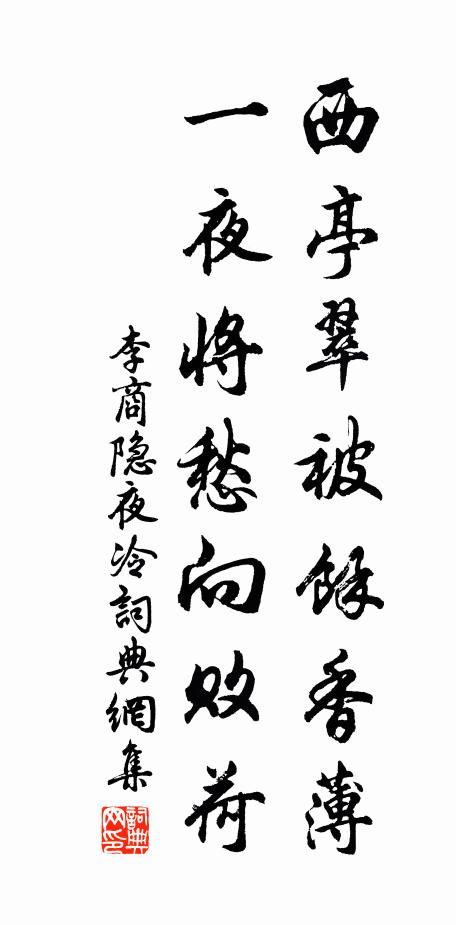 西亭翠被餘香薄
一夜將愁向敗荷
李商隐夜冷詞典網集
詞典网印